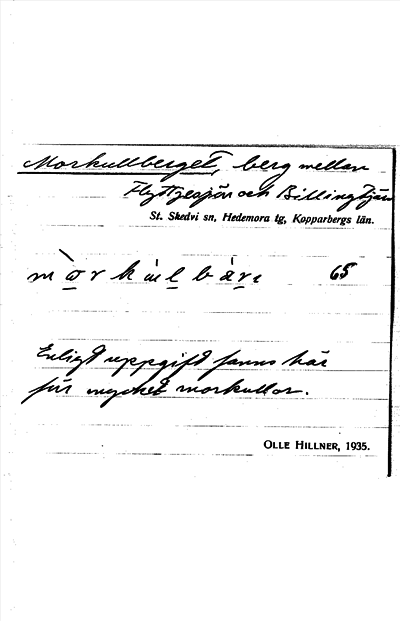 Morkullberget, berg mellan
Flyttjesjön och Billingtjärn
St. Skedvi sn, Hedemora tg, Kopparbergs län.
65
Enligt uppgift fanns här
för mycket morkullor.
OLLE HILLNER, 1935.